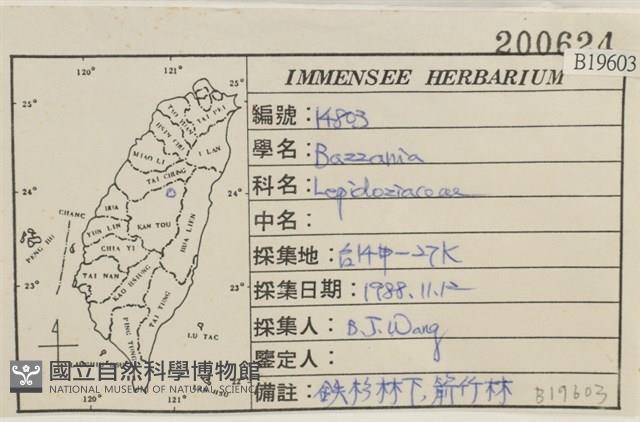 200624
B19603
IMMENSEE HERBARIUM
編號：14803
學名：Bazzania
科名：Lepidoziaceae
中名：
採集地：台14甲-27K
採集日期：1988.11.12
採集人：B.J. Wang
鑒定人：
備註：鉄杉林下,箭竹林
B19603
120°
121°
25°
25°
TAI PEI
HSIN CHU
I LAN
MIAO LI
TAI CHUNG
24°
24°
CHANG
HUA
NAN TOU
HUA LIEN
YUN LIN
PENG HU
CHIA YI
TAI NAN
KAO HSIUNG
23°
23°
TAI TUNG
PING TUNG
LU TAO
120°
121°
國立自然科學博物館
NATIONAL MUSEUM OF NATURAL SCIENCE